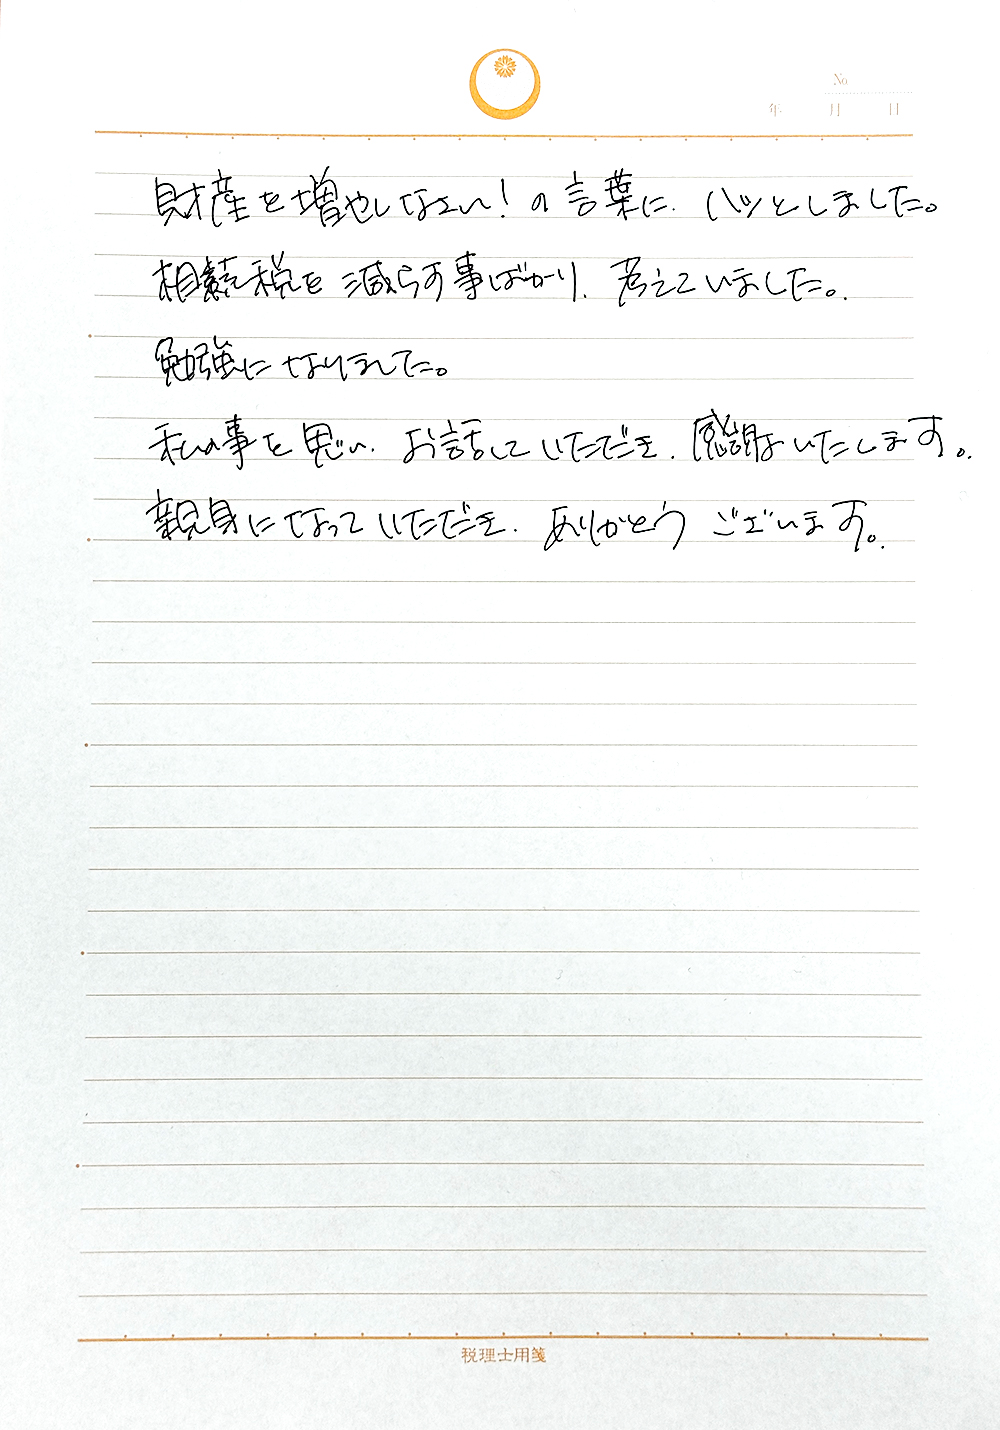 No
年 月 日
財産を増やしなさい！の言葉に、ハッとしました。
相続税を減らす事ばかり、考えていました。
勉強になりました。
私の事を思い、お話していただき、感謝いたします。
親身になっていただき、ありがとうございます。
税理士用箋